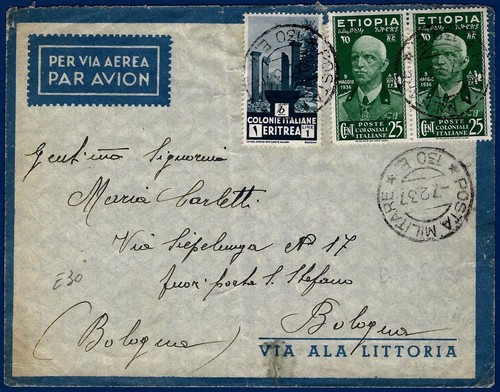 PER VIA AEREA
PAR AVION
COLONIE ITALIANE
1 LIRE 1
ERITREA
ETIOPIA
9 MAGGIO 1936
POSTE COLONIALI ITALIANE
CENT 25
ETIOPIA
POSTE COLONIALI ITALIANE
CENT 25
POSTA MILITARE
130 E
7.2.37
Gentilma Signorina
Maria Carletti
Via Siepelunga No 17
fuori porta S. Stefano
Bologna
(Bologna)
E30
VIA ALA LITTORIA